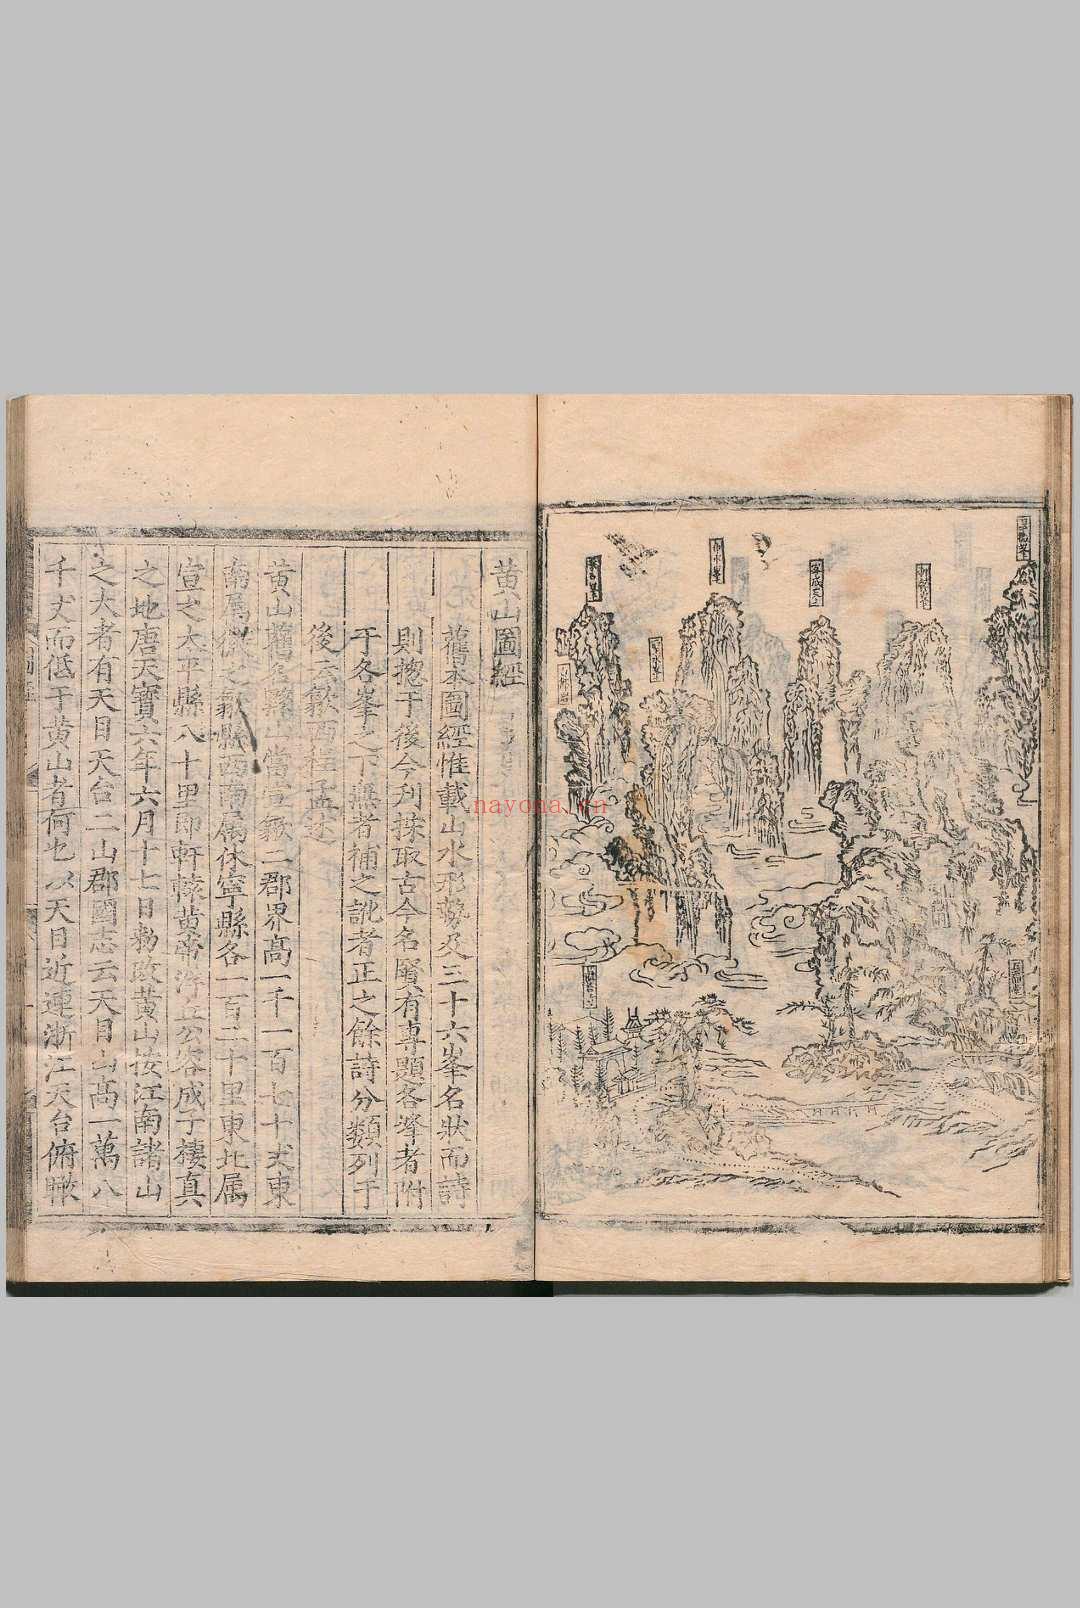 容成峯
黃山圖經
舊本圖經惟載山水形勢及三十六峯名狀而詩
則揔于後今刋採取古今名賢有專題各峯者附
于各峯之下無者補之訛者正之餘詩分類列于
後云歙西程孟述
黃山舊名黟山當宣歙二郡界高一千一百七十丈東
南屬徽之歙縣西南屬休寧縣各一百二十里東北属
宣之太平縣八十里即軒轅黃帝浮丘公容成子棲真
之地唐天寶六年六月十七日勑改黃山按江南諸山
之大者有天目天台二山郡國志云天目山高一萬八
千丈而低于黃山者何也以天目近連浙江天台俯瞰
nayona.cn